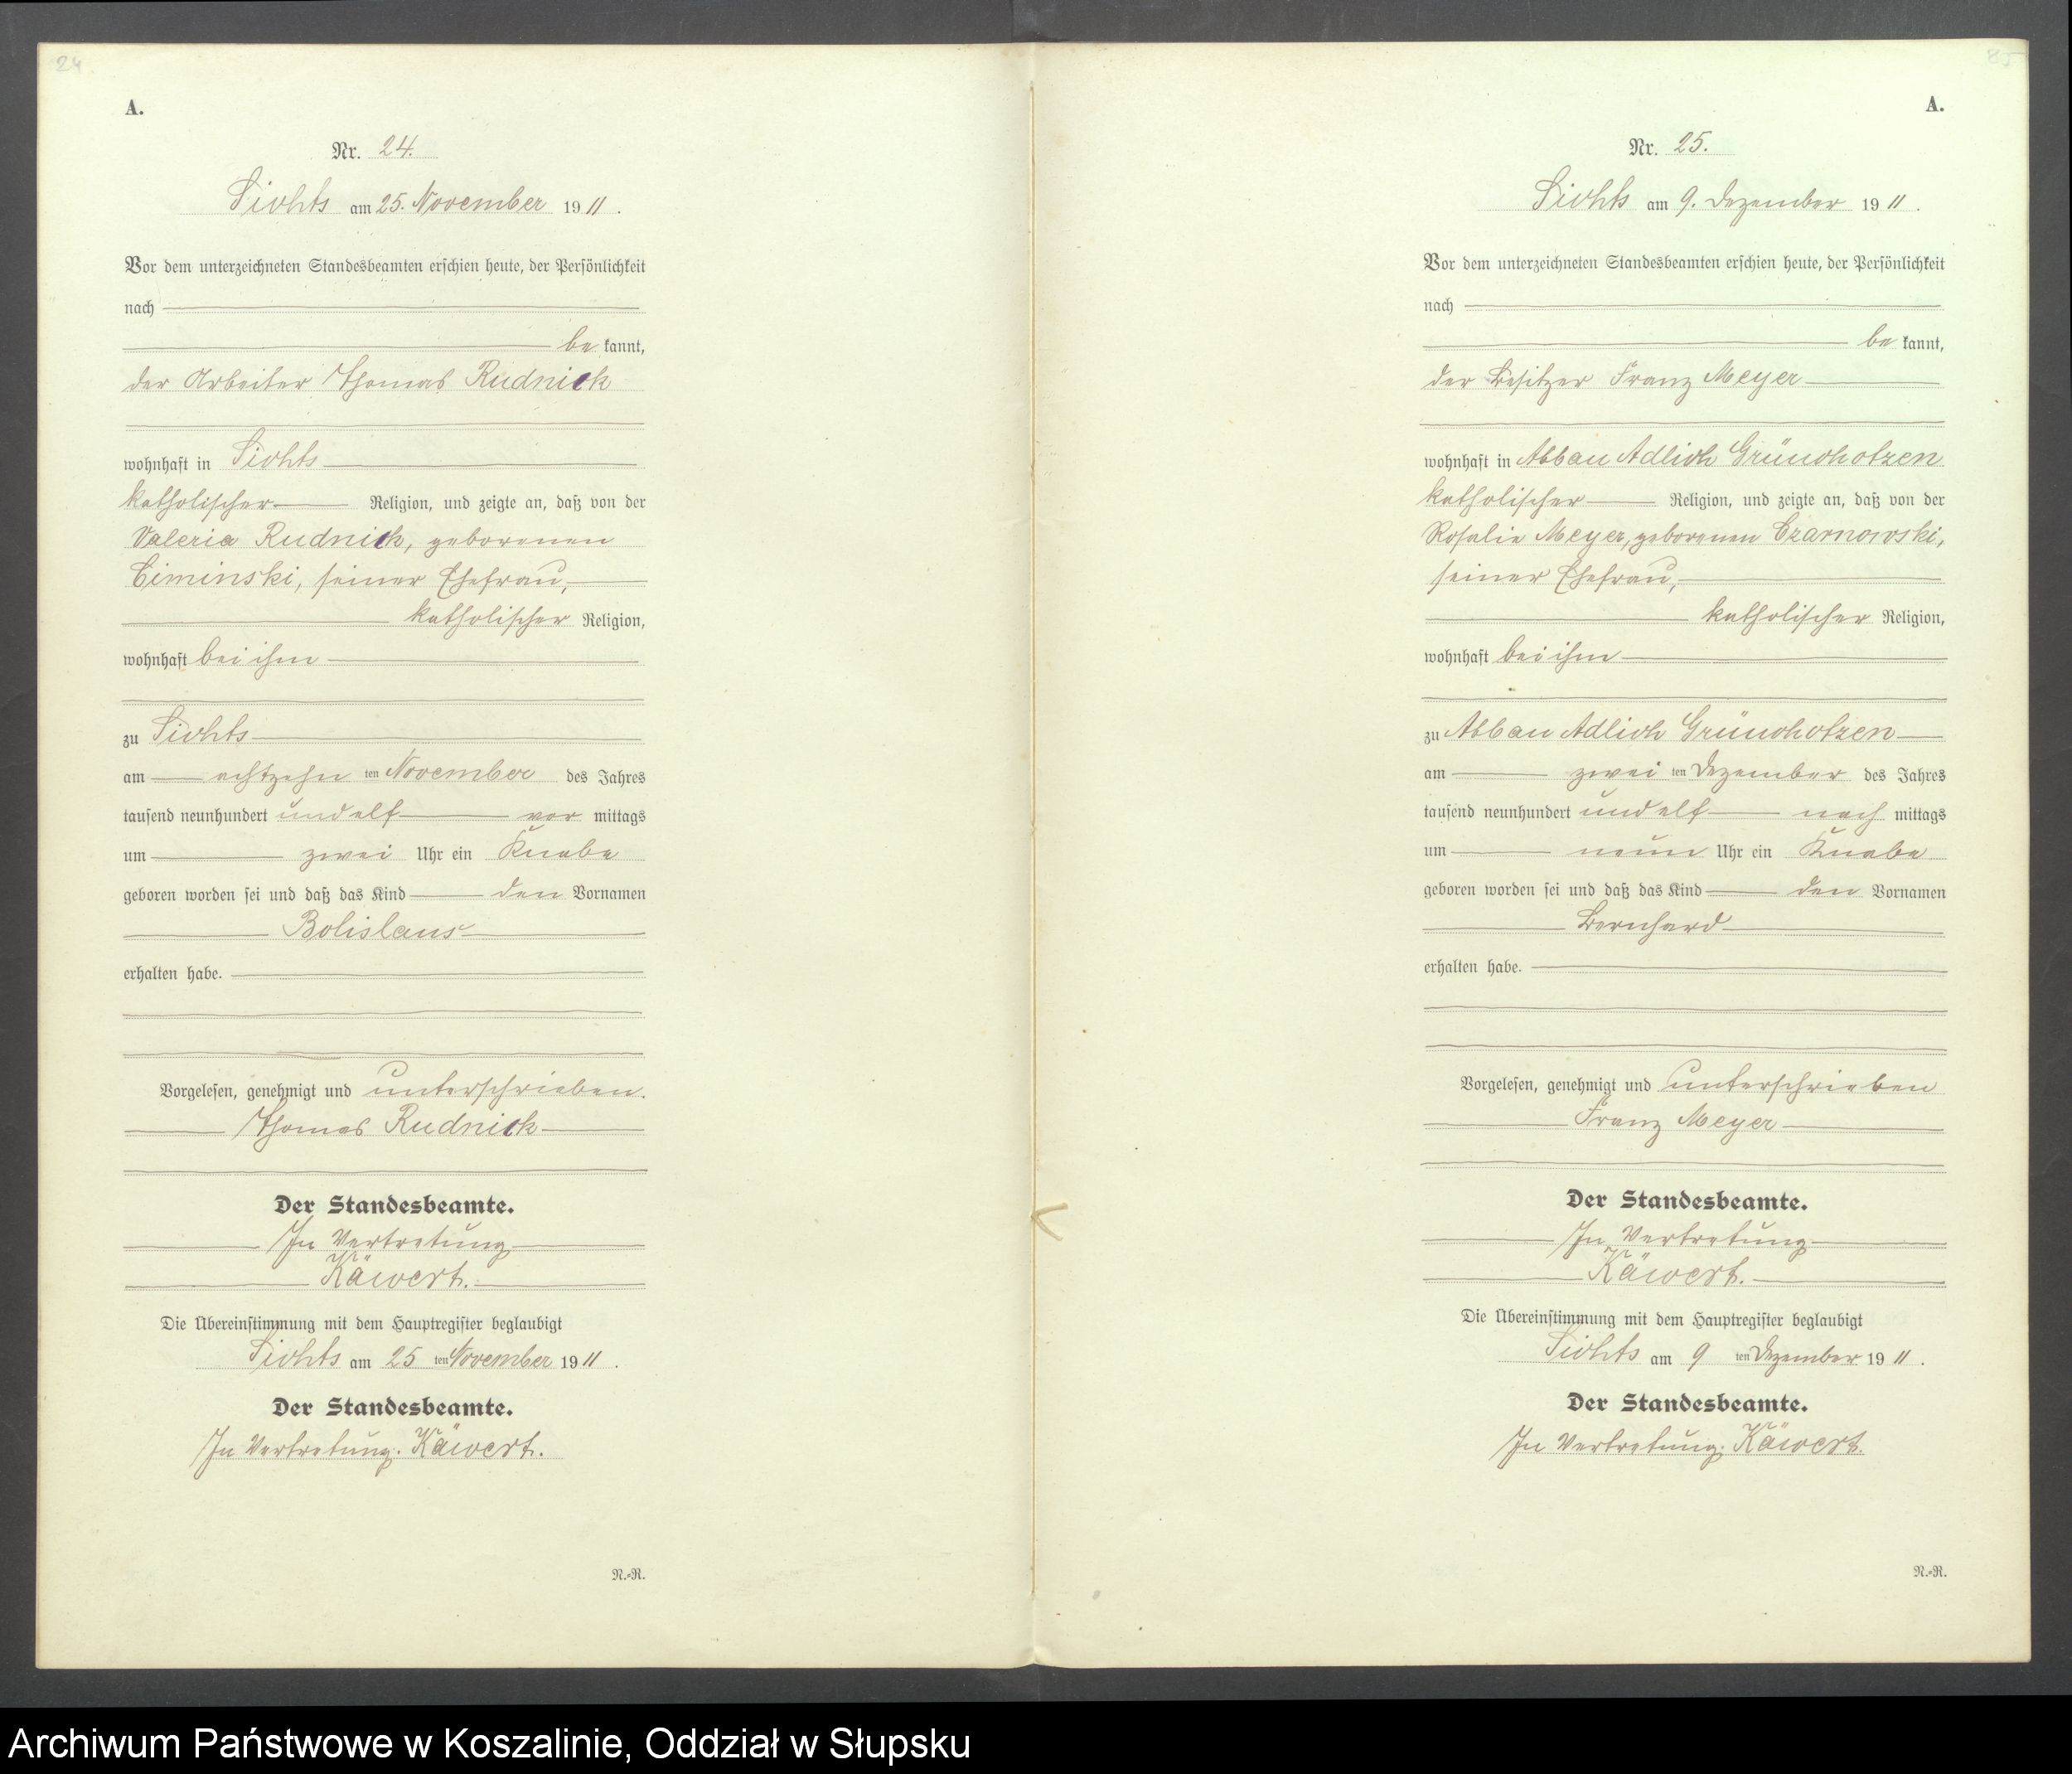 24
A.
Nr. 24.
Lichts am 25. November 1911.
Vor dem unterzeichneten Standesbeamten erschien heute, der Persönlichkeit
nach
be kannt,
der Arbeiter Thomas Rudnick
wohnhaft in Lichts
katholischer Religion, und zeigte an, daß von der
Valeria Rudnick, geborenen
Ciminski, seiner Ehefrau,
katholischer Religion,
wohnhaft bei ihm
zu Lichts
am achtzehn ten November des Jahres
tausend neunhundert und elf vor mittags
um zwei Uhr ein Knabe
geboren worden sei und daß das Kind den Vornamen
Bolislaus
erhalten habe.
Vorgelesen, genehmigt und unterschrieben.
Thomas Rudnick
Der Standesbeamte.
In Vertretung
Käwert.
Die Übereinstimmung mit dem Hauptregister beglaubigt
Lichts am 25 ten November 1911.
Der Standesbeamte.
In Vertretung: Käwert.
N.-R.
A.
Nr. 25.
Lichts am 9. Dezember 1911.
Vor dem unterzeichneten Standesbeamten erschien heute, der Persönlichkeit
nach
be kannt,
der Besitzer Franz Meyer
wohnhaft in Abbau Adlich Gründhotzen
katholischer Religion, und zeigte an, daß von der
Rosalie Meyer, geborenen Czarnowski,
seiner Ehefrau,
katholischer Religion,
wohnhaft bei ihm
zu Abbau Adlich Gründhotzen
am zwei ten Dezember des Jahres
tausend neunhundert und elf nach mittags
um neun Uhr ein Knabe
geboren worden sei und daß das Kind den Vornamen
Bernhard
erhalten habe.
Vorgelesen, genehmigt und unterschrieben
Franz Meyer
Der Standesbeamte.
In Vertretung
Käwert.
Die Übereinstimmung mit dem Hauptregister beglaubigt
Lichts am 9 ten Dezember 1911.
Der Standesbeamte.
In Vertretung: Käwert.
N.-R.
Archiwum Państwowe w Koszalinie, Oddział w Słupsku